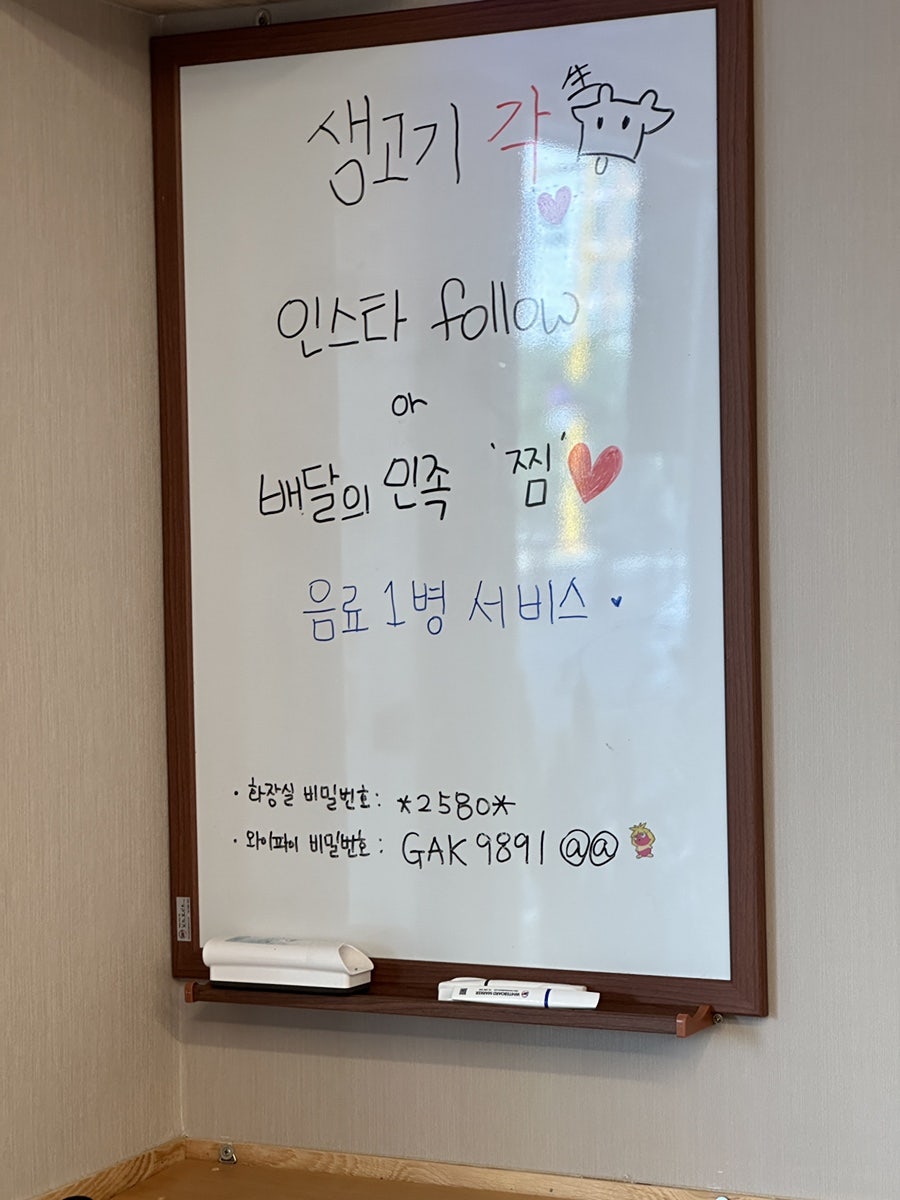 생고기 각 牛
인스타 follow
or
배달의 민족 '찜'
음료 1병 서비스
· 화장실 비밀번호 : *2580*
· 와이파이 비밀번호 : GAK9891@@
WHITEBOARD MARKER